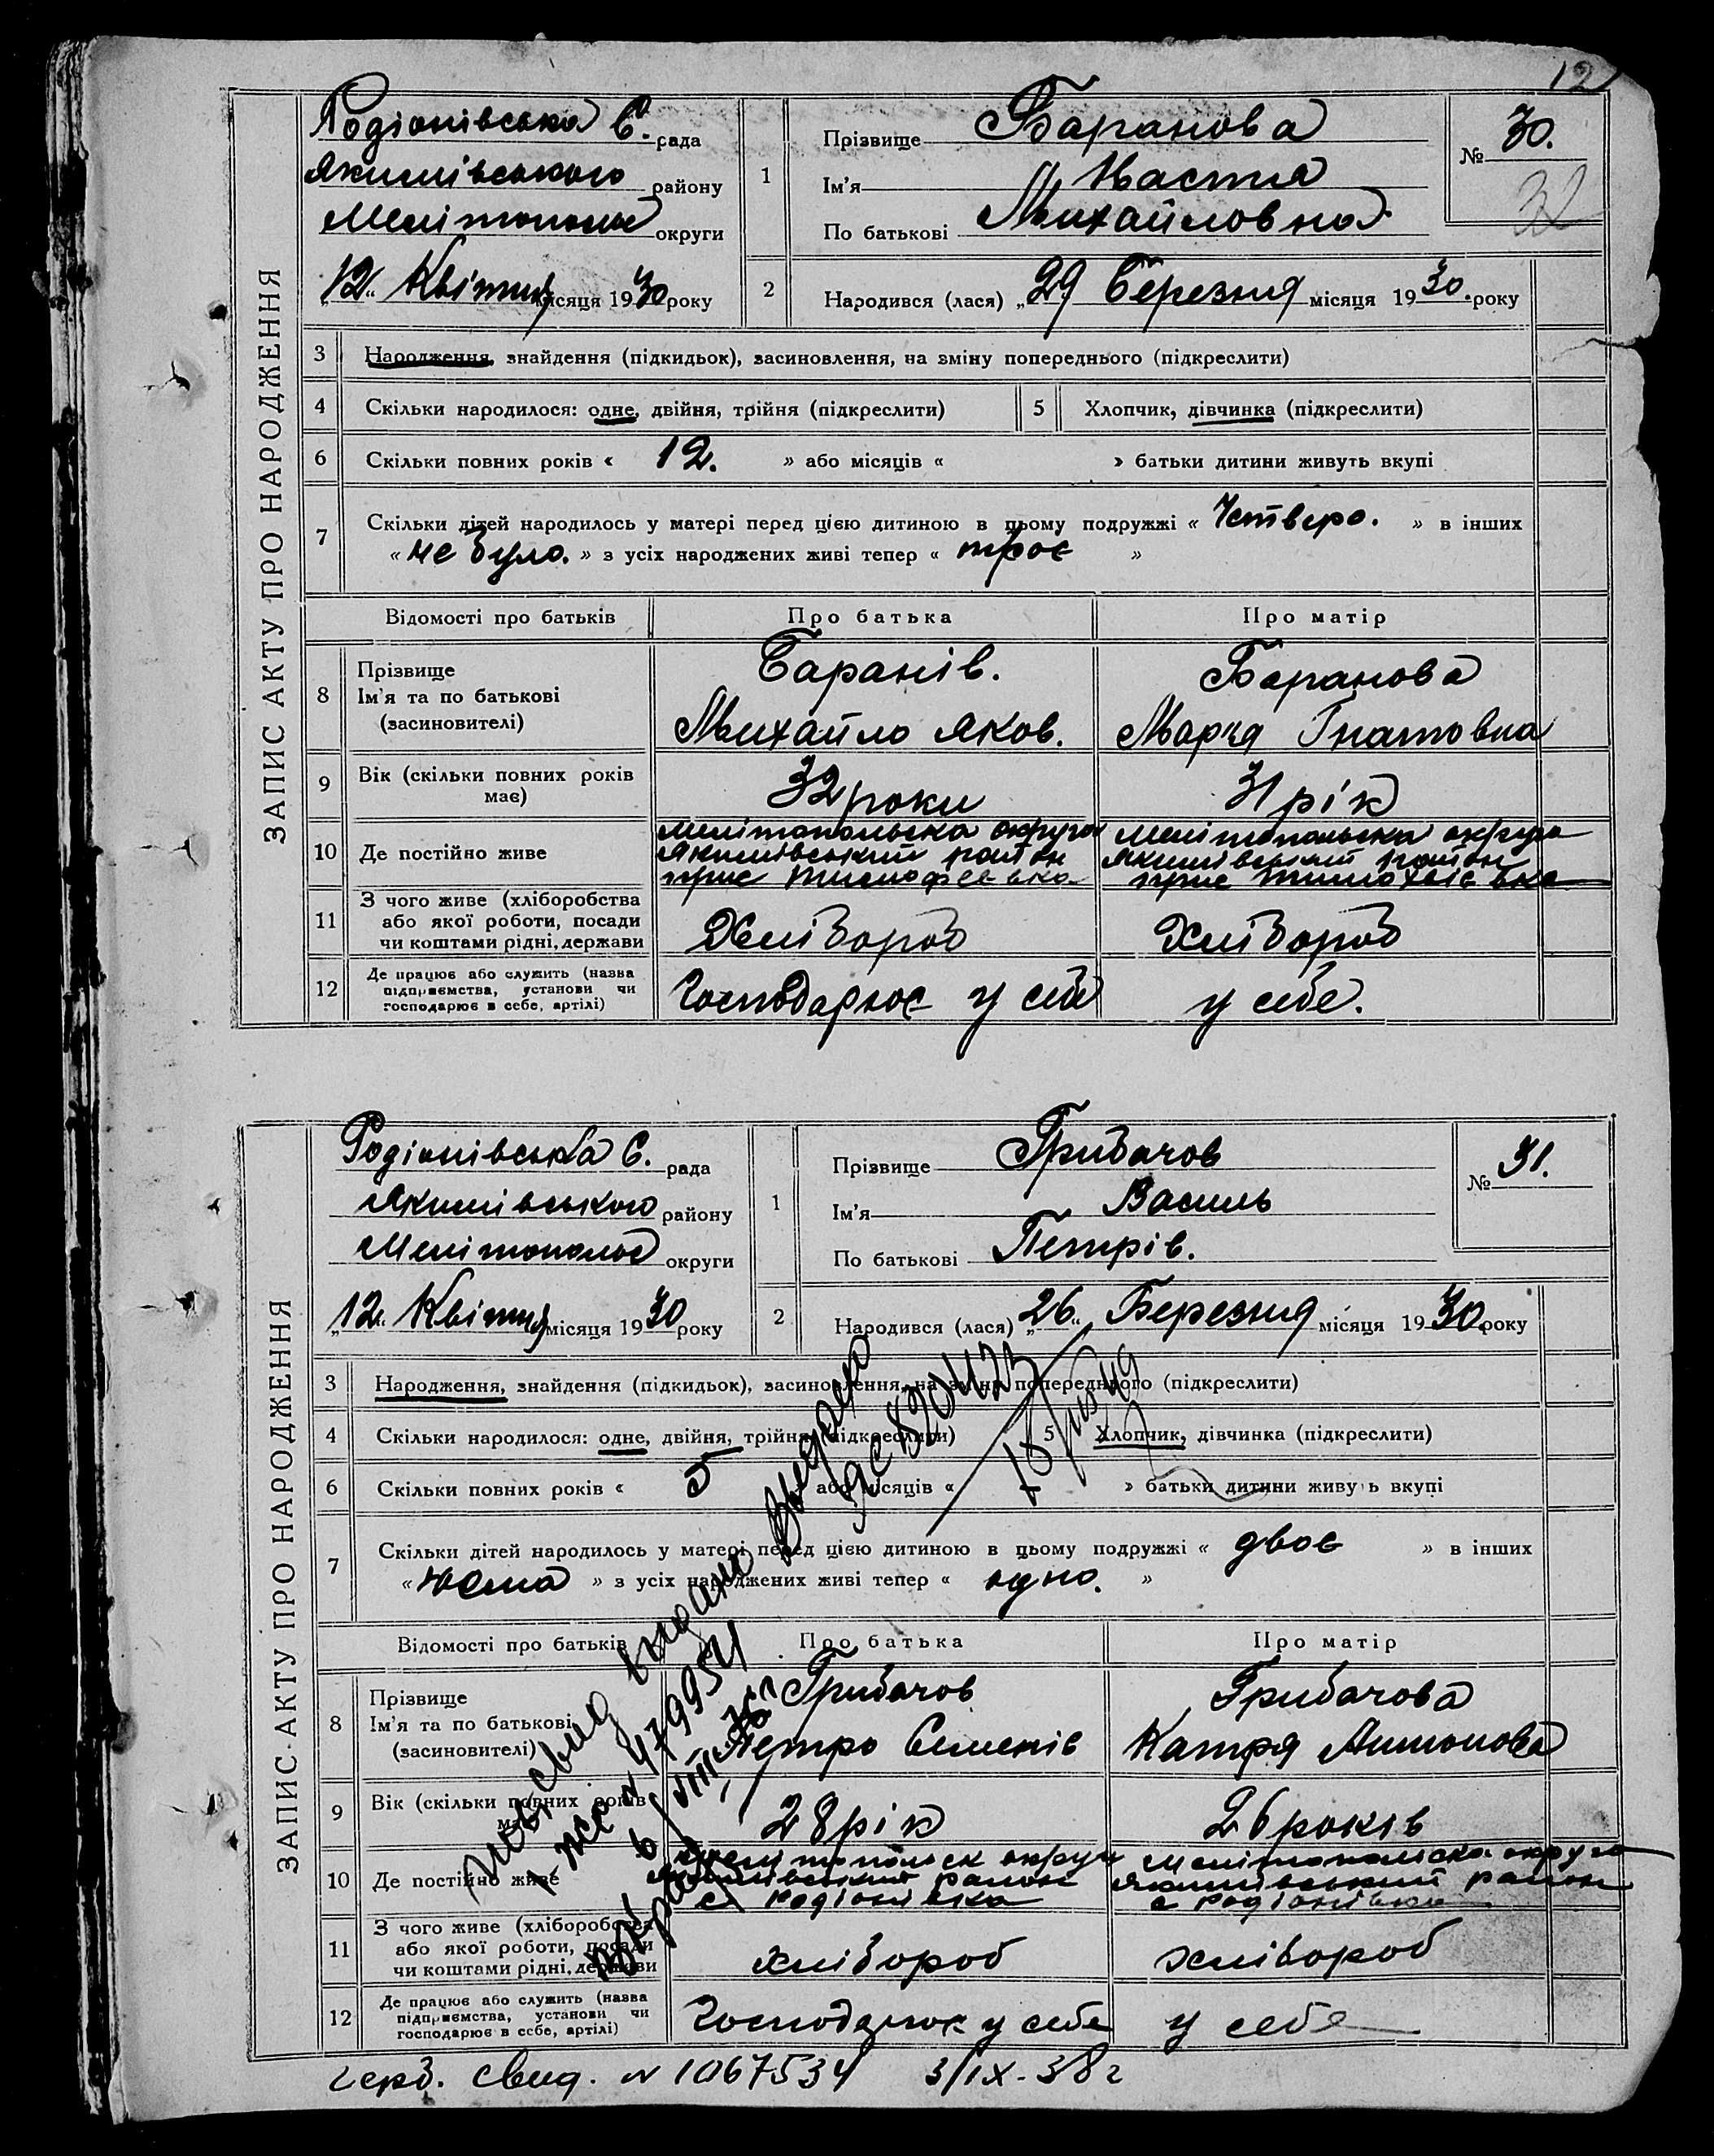 12
ЗАПИС АКТУ ПРО НАРОДЖЕННЯ
Родіонівська С. рада
Якимівського району
Мелітопольс округи
„12„ Квітня місяця 1930 року
1
Прізвище Баранова
Ім'я Настя
По батькові Михайловна
№ 30.
32
2
Народився (лася) „29 Березня місяця 1930. року
3 Народження, знайдення (підкидьок), засиновлення, на зміну попереднього (підкреслити)
4 Скільки народилося: одне, двійня, трійня (підкреслити)
5 Хлопчик, дівчинка (підкреслити)
6 Скільки повних років « 12. » або місяців « » батьки дитини живуть вкупі
7 Скільки дітей народилось у матері перед цією дитиною в цьому подружжі « Четверо. » в інших
« не було. » з усіх народжених живі тепер « троє »
Відомості про батьків Про батька Про матір
8 Прізвище
Ім'я та по батькові
(засиновителі)
Баранів.
Михайло Яков.
Баранова
Марія Гнатовна
9 Вік (скільки повних років
має)
32 роки
31 рік
10 Де постійно живе
Мелітопольська округа
Якимівський район
Мелітопольська округа
Якимівський район
11 З чого живе (хліборобства
або якої роботи, посади
чи коштами рідні, держави
Хлібороб
Хлібороб
12 Де працює або служить (назва
підприємства, установи чи
господарює в себе, артілі)
Господарює у себе
у себе.
ЗАПИС АКТУ ПРО НАРОДЖЕННЯ
Родіонівська С. рада
Якимівського району
Мелітопольс округи
„12„ Квітня місяця 1930 року
1
Прізвище Грибачов
Ім'я Василь
По батькові Петрів.
№ 31.
2
Народився (лася) „26„ Березня місяця 1930. року
3 Народження, знайдення (підкидьок), засиновлення, на зміну попереднього (підкреслити)
4 Скільки народилося: одне, двійня, трійня (підкреслити)
5 Хлопчик, дівчинка (підкреслити)
6 Скільки повних років « 5 » або місяців « » батьки дитини живуть вкупі
7 Скільки дітей народилось у матері перед цією дитиною в цьому подружжі « двоє » в інших
« нема » з усіх народжених живі тепер « одно. »
Відомості про батьків Про батька Про матір
8 Прізвище
Ім'я та по батькові
(засиновителі)
Грибачов
Петро Семенів
Грибачова
Катря Антонова
9 Вік (скільки повних років
має)
28 рік
26 років
10 Де постійно живе
Мелітопольск округи
Якимівський район
с Родіонівка
Мелітопольска округа
Якимівський район
с Родіонівка
11 З чого живе (хліборобства
або якої роботи, посади
чи коштами рідні, держави
хлібороб
хлібороб
12 Де працює або служить (назва
підприємства, установи чи
господарює в себе, артілі)
Господарює у себе
у себе
повт свид выдано
N 479954
герб. свид. N 1067534 3/IX-38 г